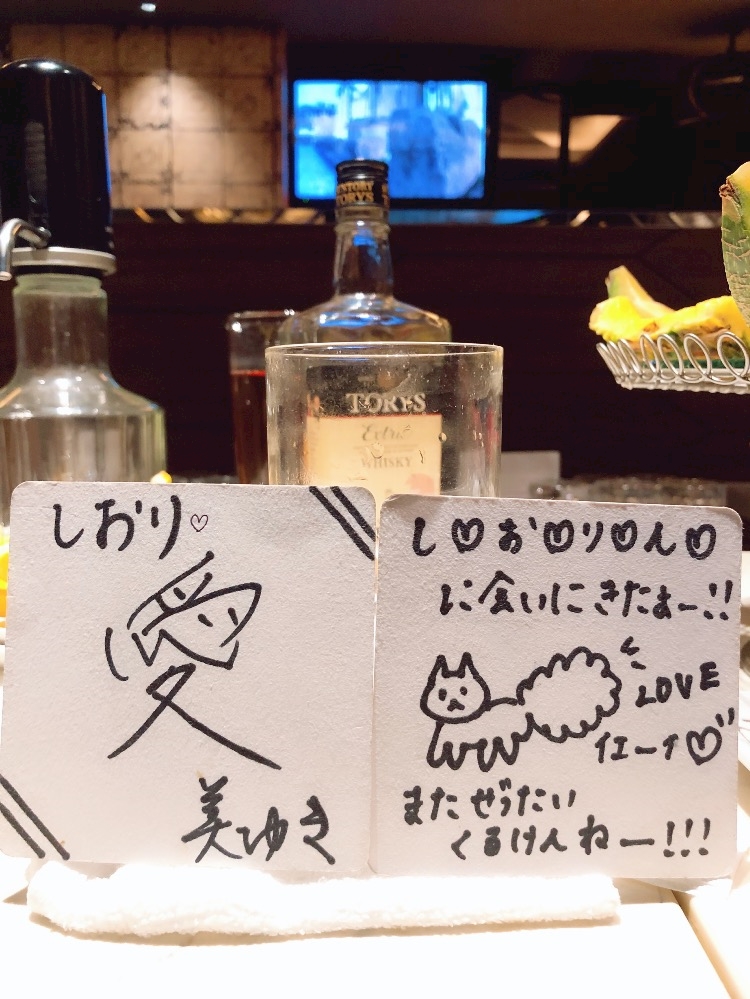 SUNTORY
TORYS
TORYS
Extra
WHISKY
しおり♡
愛
美ゆき
し♡お♡り♡ん♡
に会いにきたぁー!!
LOVE
イエーイ♡
またぜったい
くるけんねー!!!